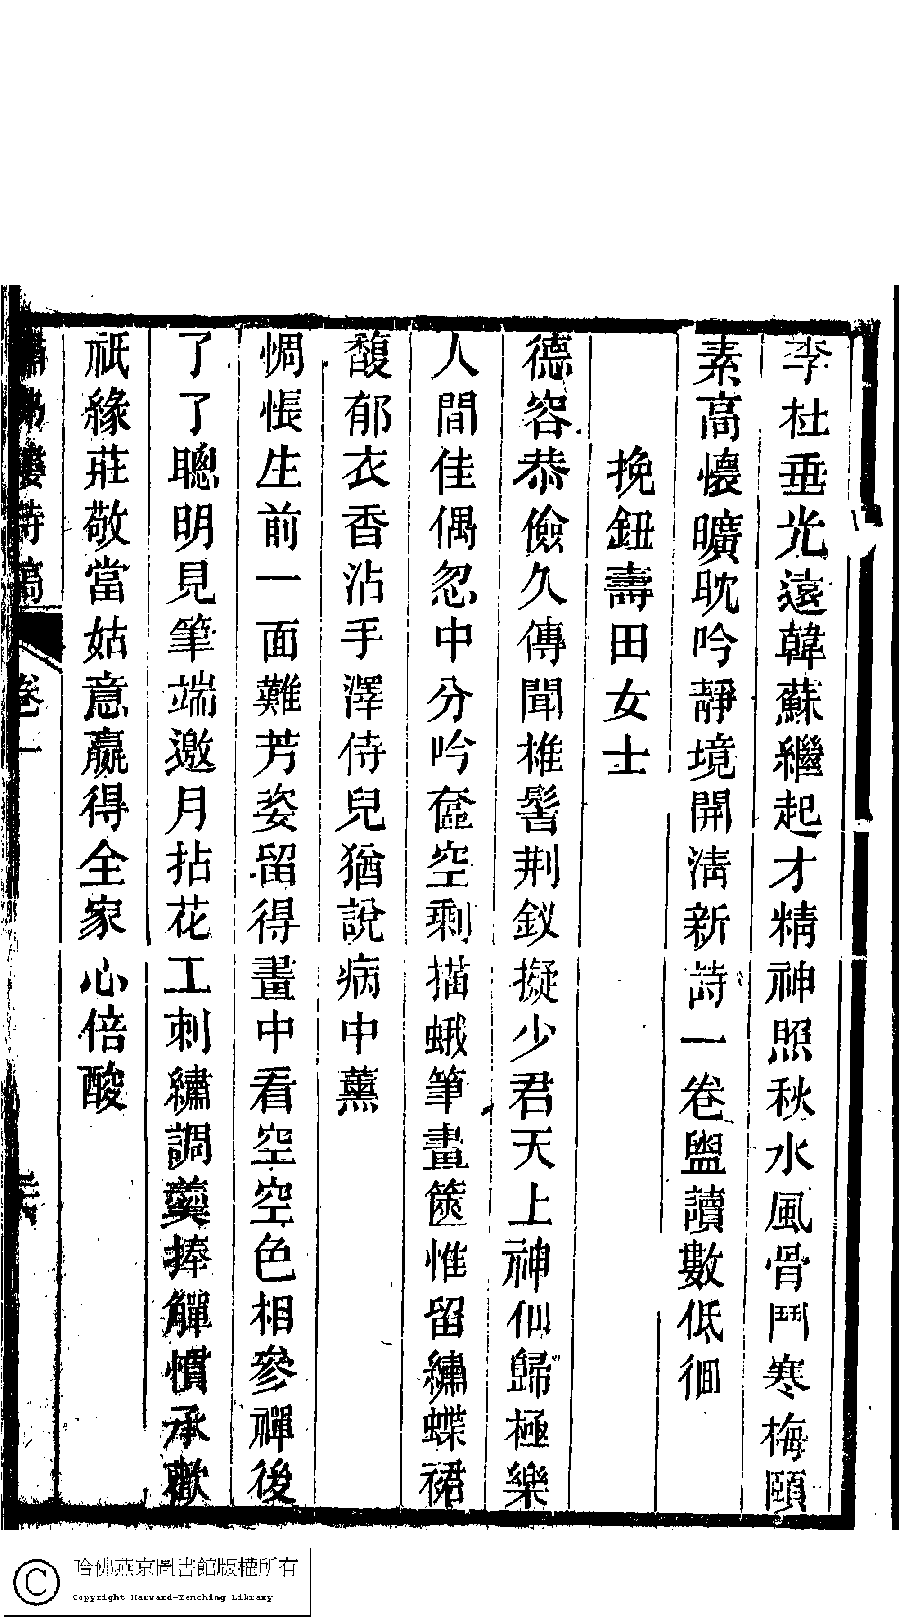 李杜垂光遠韓蘇繼起才精神照秋水風骨鬥寒梅頤
素高懷曠耽吟靜境開清新詩一卷盥讀數低徊
挽鈕壽田女士
德容恭儉久傳聞椎髻荆釵擬少君天上神仙歸極樂
人間佳偶忽中分吟奩空剩描蛾筆畫篋惟留繡蝶裙
馥郁衣香沾手澤侍兒猶說病中薰
惆悵生前一面難芳姿留得畫中看空空色相參禪後
了了聰明見筆端邀月拈花工刺繡調羹捧觶慣承歡
祇緣莊敬當姑意贏得全家心倍酸
樓詩稿
卷一
哈佛燕京圖書館版權所有
Copyright Harvard-Yenching Library